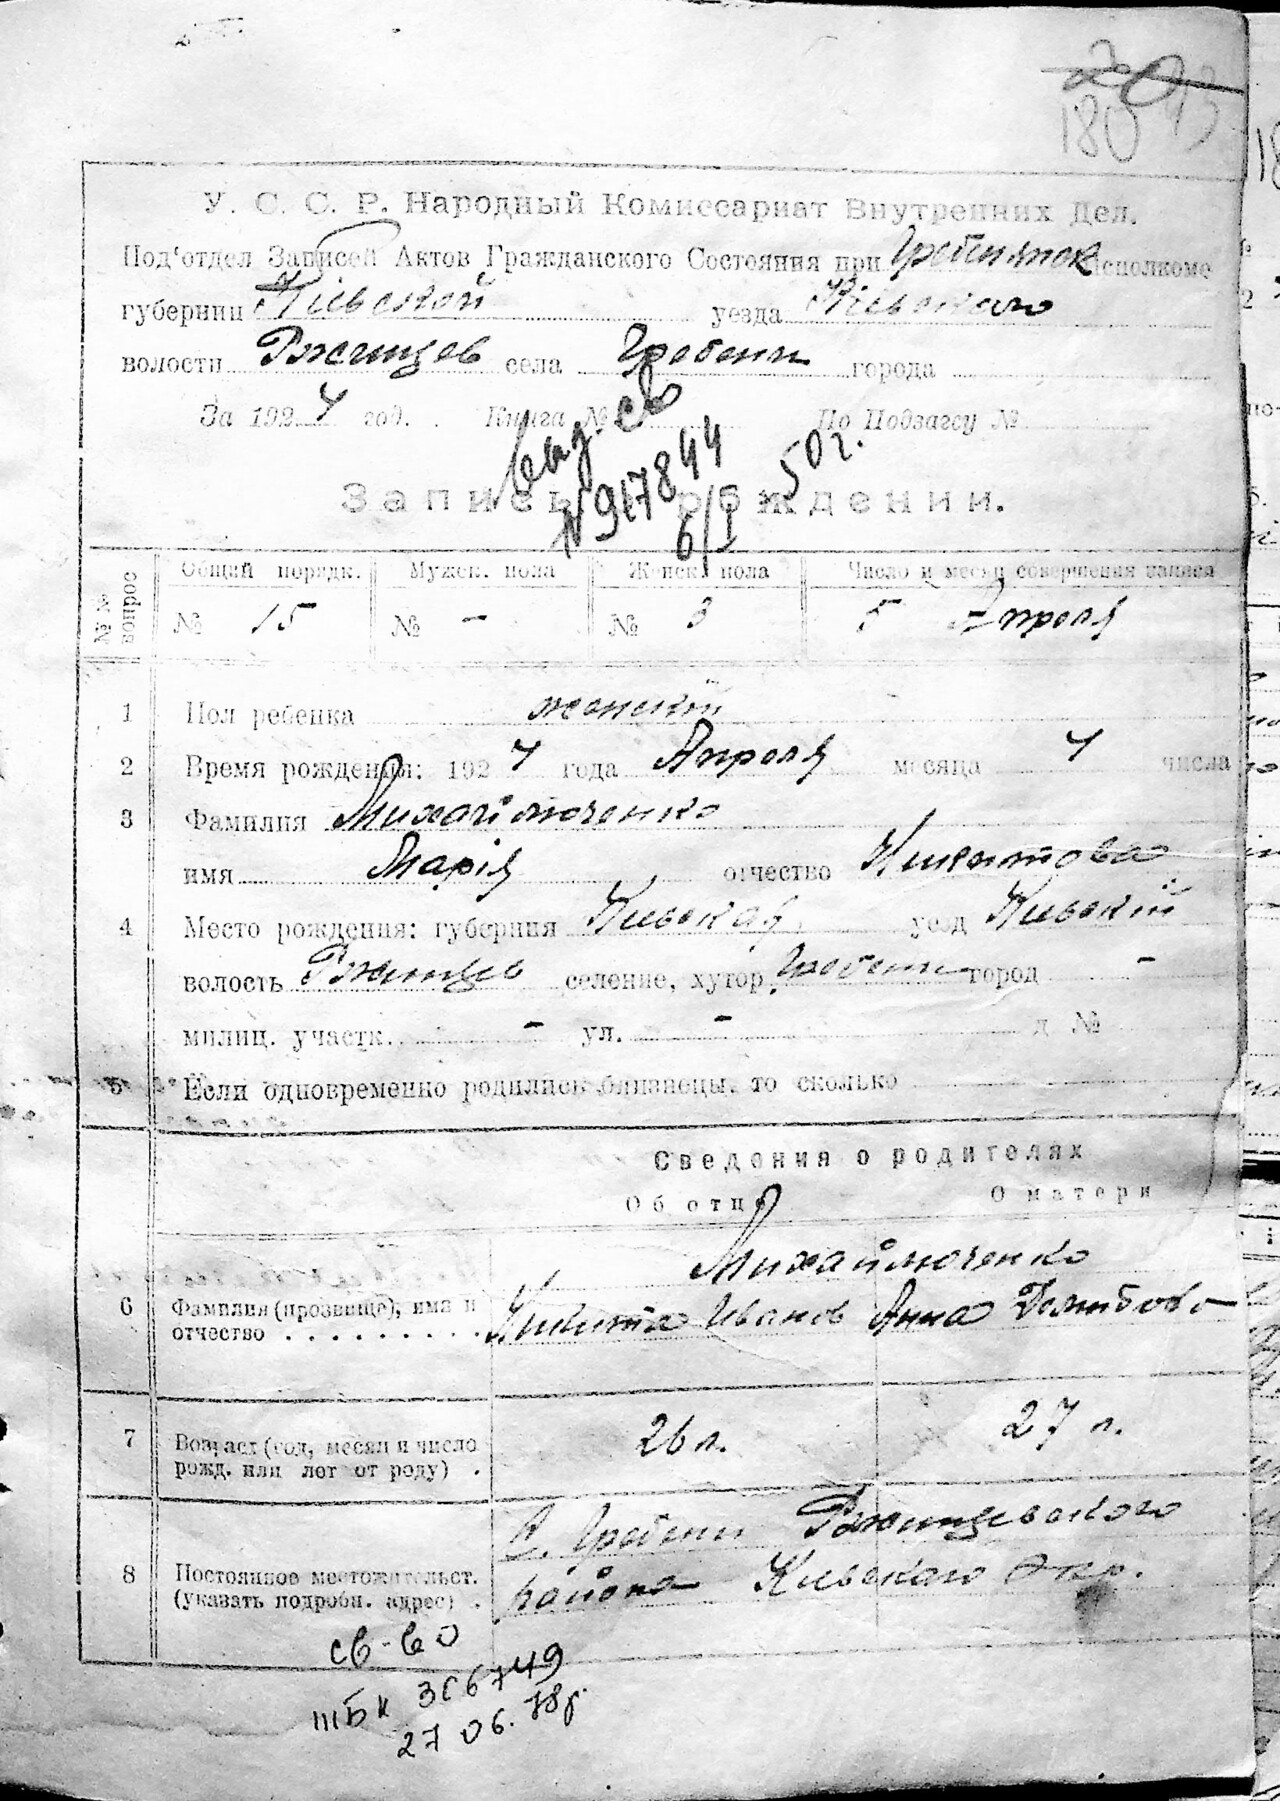 180
У. С. С. Р. Народный Комиссариат Внутренних Дел.
Под‘отдел Записей Актов Гражданского Состояния при Гребенянок исполкоме
губернии Кіевской уезда Кіевского
волости Ржищев села Гребени города
За 1924 год. Книга № По Подзагсу №
выд. св
№ 917844
6/I 50 г.
Запись рождении.
№№ вопрос
Общий порядк. Мужск. пола Женск. пола Число и месяц совершения записи
№ 15 № - № 3 5 Апреля
1 Пол ребенка женскій
2 Время рождения: 1924 года Апреля месяца 4 числа
3 Фамилия Михайлюченко
имя Марія отчество Никитова
4 Место рождения: губерния Киевская уезд Киевскій
волость Ржищев селение, хутор Гребени город -
милиц. участк. - ул. - д №
5 Если одновременно родились близнецы, то сколько
Сведения о родителях
Об отце О матери
Михайлюченко
6 Фамилия (прозвище), имя и отчество Никита Иванов Анна
7 Возраст (год, месяц и число рожд. или лет от роду) 26 л. 27 л.
С. Гребени Ржищевского
8 Постоянное местожительст. (указать подробн. адрес) района Киевского Окр.
св-во
ІІІ БК 366749
27 06. 78г.